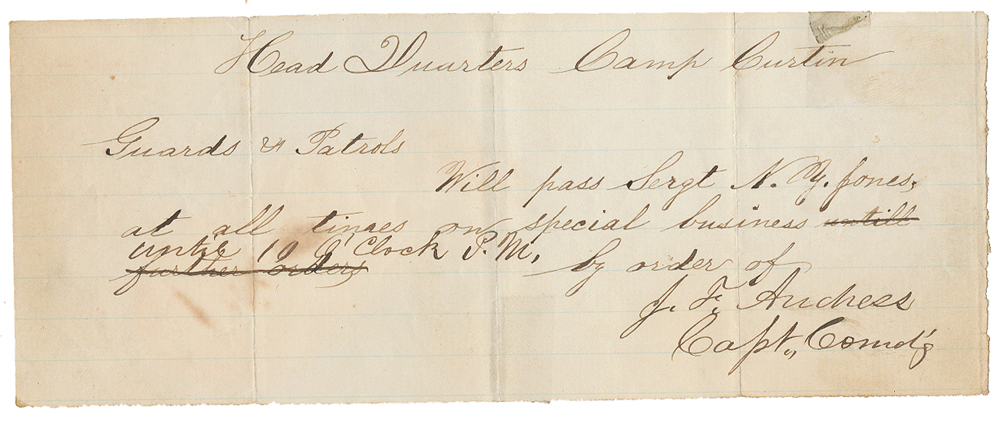 Head Quarters Camp Curtin
Guards & Patrols
Will pass Sergt N. Y. Jones,
at all times on special business untill
until 10 O Clock P.M.
further orders by order of
J. F. Andress
Capt,, Comd'g